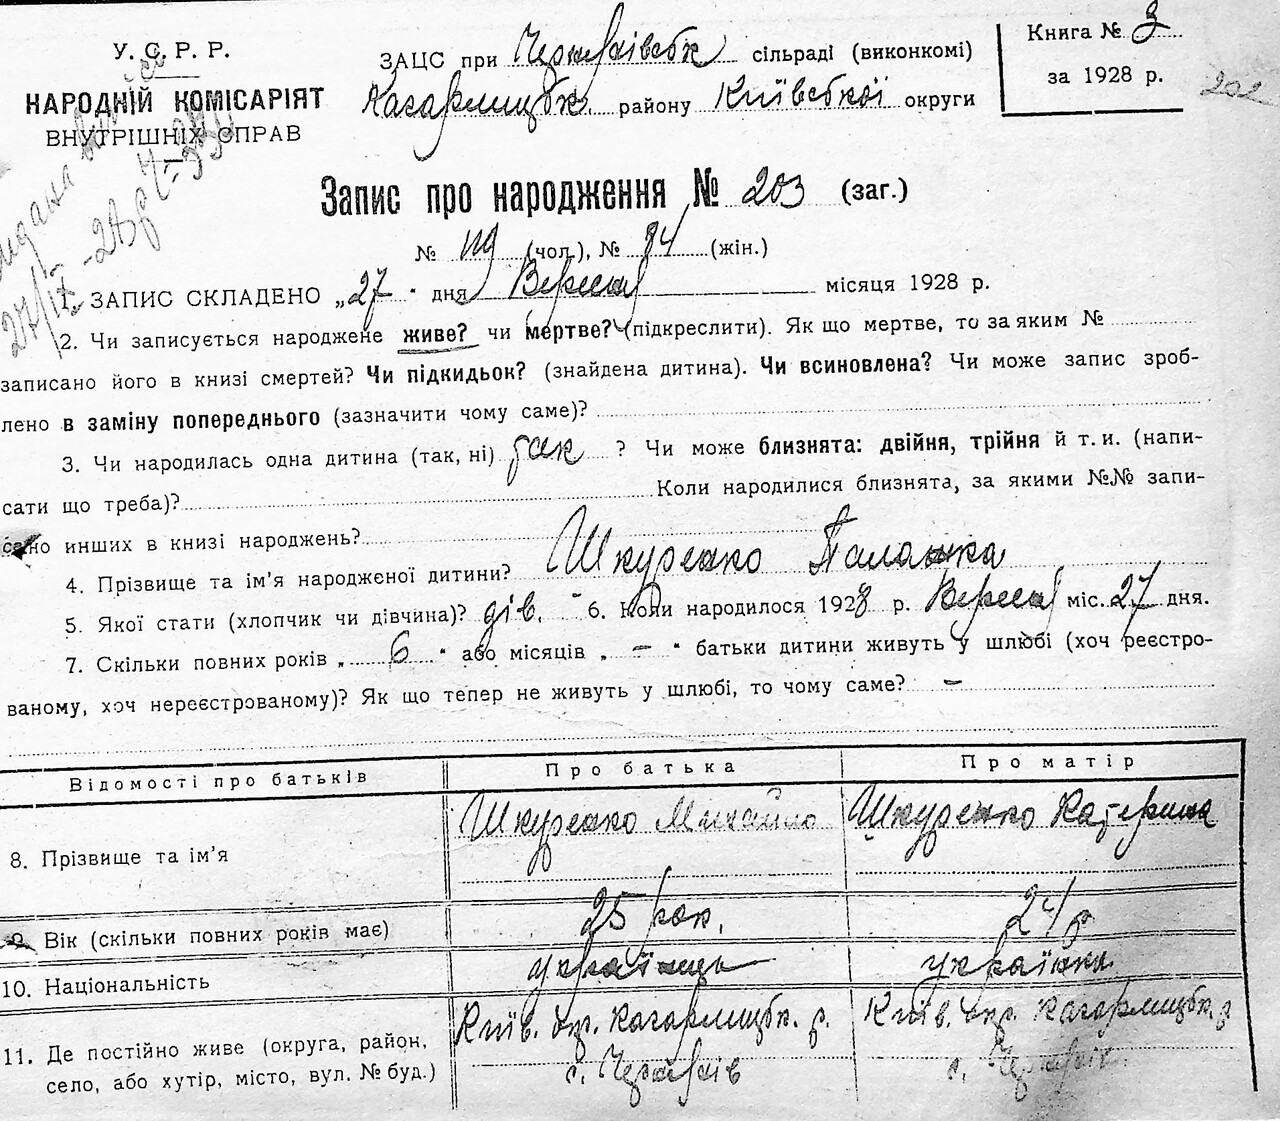 У. С. Р. Р.
НАРОДНІЙ КОМІСАРІЯТ
ВНУТРІШНІХ СПРАВ
ЗАЦС при сільраді (виконкомі)
Кагарлицьк. району Київської округи
Книга № 3
за 1928 р.
202
Запис про народження № 203 (заг.)
№ 119 (чол.), № 84 (жін.)
1. ЗАПИС СКЛАДЕНО „27 “ дня Вересня місяця 1928 р.
2. Чи записується народжене живе? чи мертве? (підкреслити). Як що мертве, то за яким №
записано його в книзі смертей? Чи підкидьок? (знайдена дитина). Чи всиновлена? Чи може запис зроб-
лено в заміну попереднього (зазначити чому саме)?
3. Чи народилась одна дитина (так, ні) так ? Чи може близнята: двійня, трійня й т. и. (напи-
сати що треба)? Коли народилися близнята, за якими №№ запи-
сано инших в книзі народжень?
4. Прізвище та ім’я народженої дитини? Шкуренко Палажка
5. Якої стати (хлопчик чи дівчина)? дів. 6. Коли народилося 1928 р. Вересня міс. 27 дня.
7. Скільки повних років „ 6 “ або місяців „ — “ батьки дитини живуть у шлюбі (хоч реєстро-
ваному, хоч нереєстрованому)? Як що тепер не живуть у шлюбі, то чому саме? —
Відомості про батьків Про батька Про матір
8. Прізвище та ім’я Шкуренко Михайло Шкуренко Катерина
9. Вік (скільки повних років має) 25 рок. 24 р
10. Національність українець українка
11. Де постійно живе (округа, район, Київ. окр. Кагарлицьк. р. Київ. окр. Кагарлицьк. р
село, або хутір, місто, вул. № буд.) с.